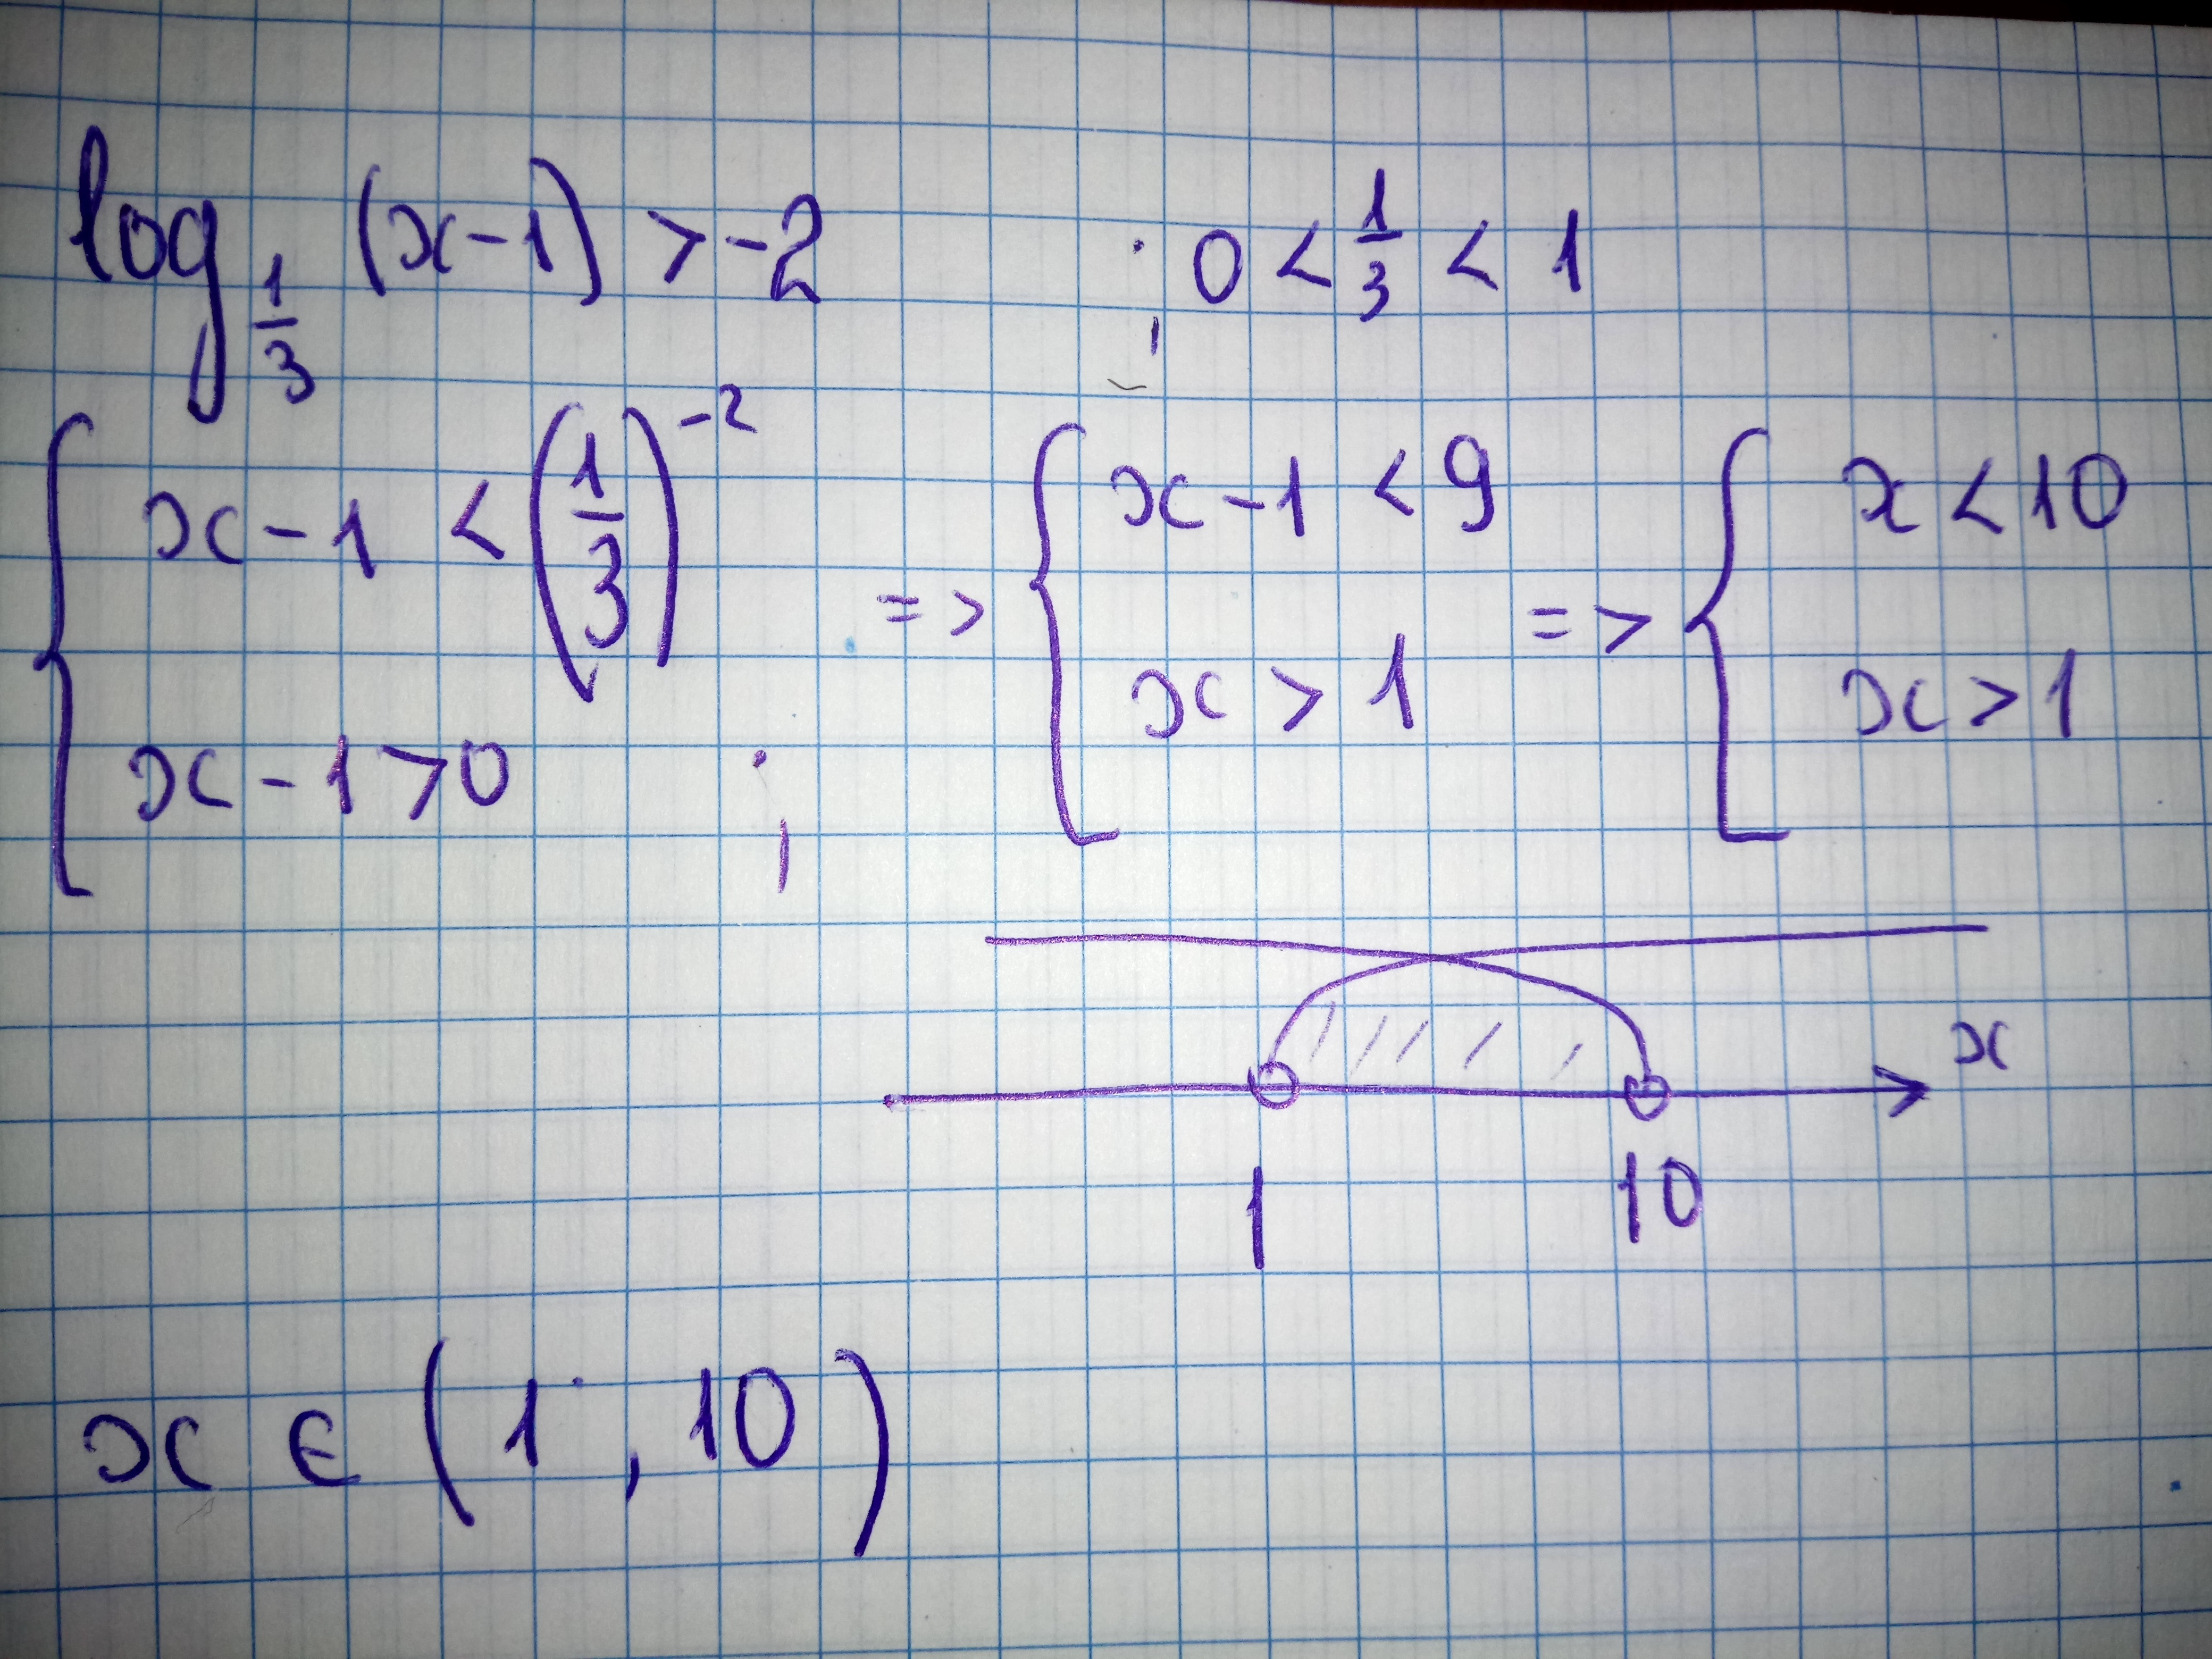 log_{1/3} (x-1) > -2 ; 0 < 1/3 < 1
{ x-1 < (1/3)^{-2} => { x-1 < 9 => { x < 10
x-1 > 0 ; x > 1 x > 1
x
1 10
x ∈ (1, 10)